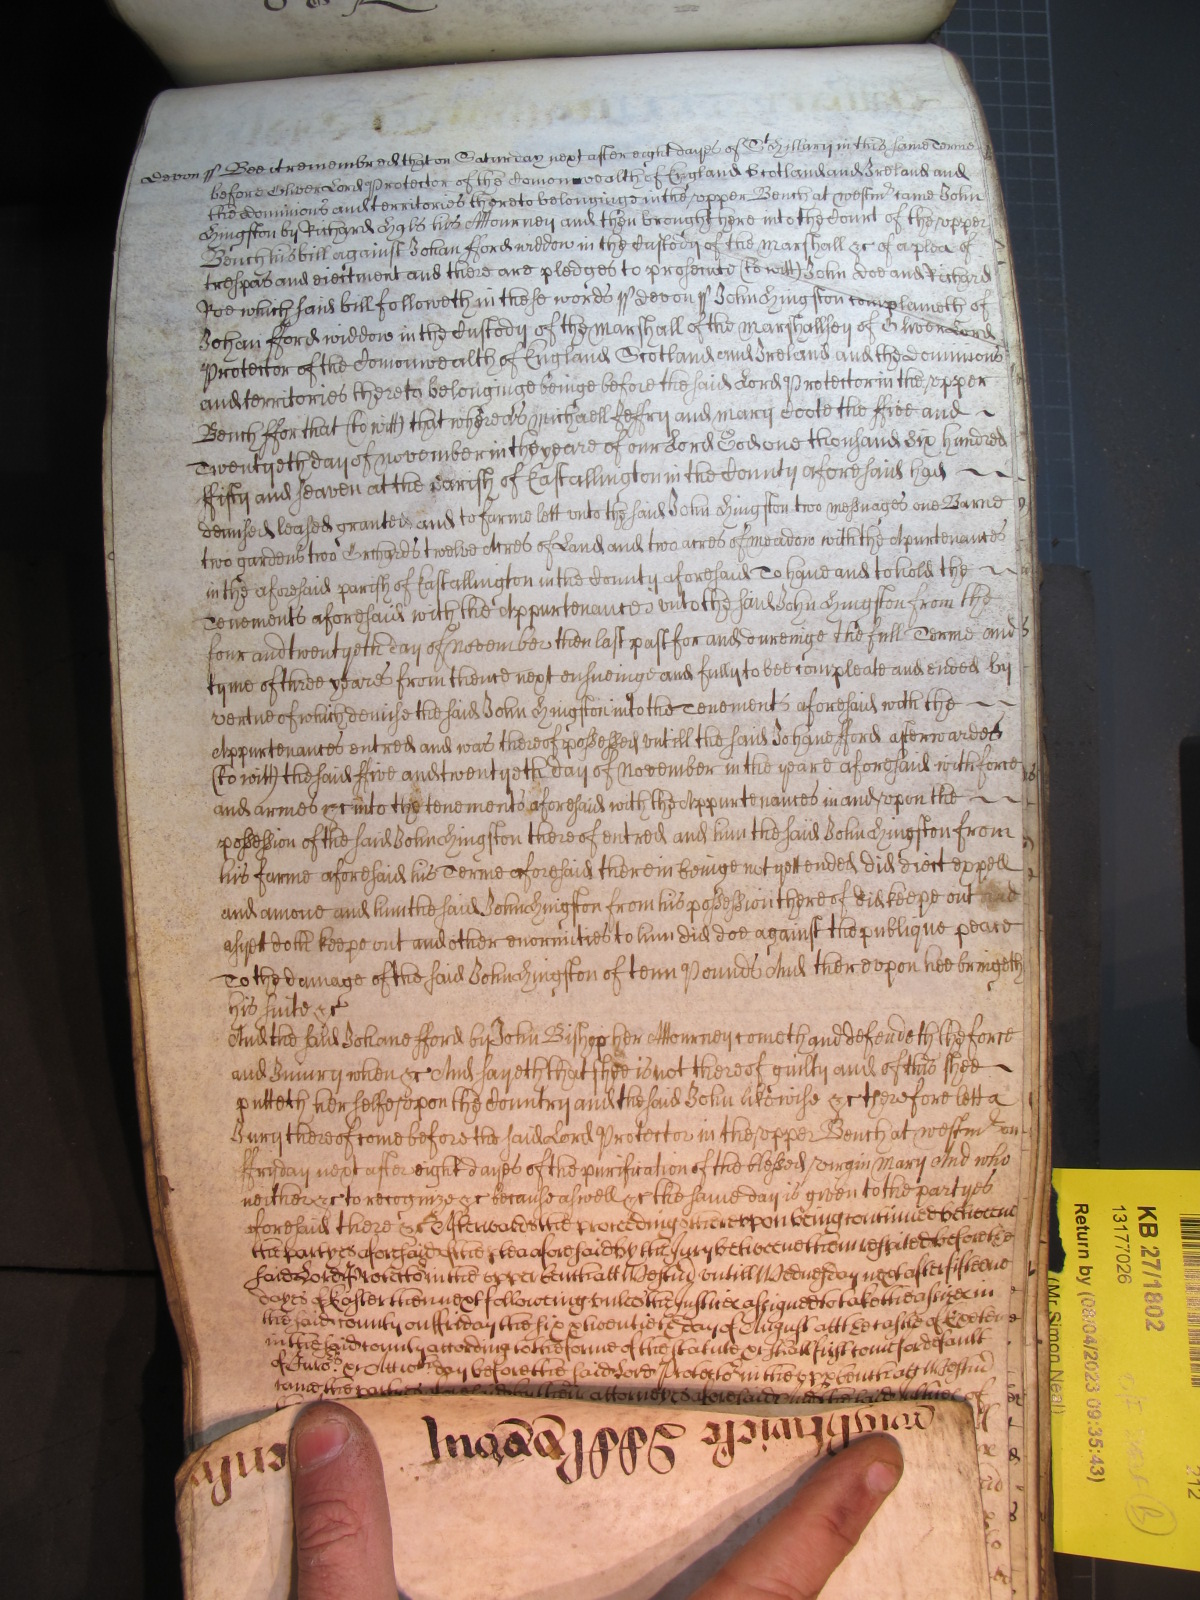 devon ss Bee it remembred that on Saturday next after eight dayes of St Hillary in this same Terme
before Oliver Lord Protector of the Comonwealth of England Scotland and Ireland and
the dominions and territories thereto belonginge in the upper Bench at westmr came John
Hingston by Richard his Attourney and then brought here into the Court of the upper
Bench his bill against Johan fford widdow in the Custody of the Marshall &c of a plea of
trespas and eiectment and there are pledges to prosecute (to witt) John Doe and Richard
Roe which said bill followeth in these words ss devon ss John Hingston complaineth of
Johan fford widdow in the Custody of the Marshall of the Marshallsey of Oliver Lord
Protector of the Comonwealth of England Scotland and Ireland and the dominions
and territories thereto belonginge beinge before the said Lord Protector in the upper
Bench ffor that (to witt) that whereas Michaell Jeffry and Mary Coote the ffive and
Twentyeth day of November in the yeare of our Lord God one thousand Six hundred
ffifty and seaven at the parish of East allington in the County aforesaid had
demised leased granted and to farme lett unto the said John Hingston two messuages one Barne
two gardens two Orchards twelve Acres of Land and two acres of meadow with the Apurtenances
in the aforesaid parish of East allington in the County aforesaid To have and to hold the
Tenements aforesaid with the Appurtenances unto the said John Hingston from the
four and twentyeth day of November then last past for and dureinge the full Terme and
tyme of three yeares from thence next ensueinge and fully to bee compleate and ended by
vertue of which demise the said John Hingston into the Tenements aforesaid with the
Appurtenances entred and was thereof possessed untill the said Johane fford afterwardes
(to witt) the said ffive and twentyeth day of November in the yeare aforesaid with force
and armes &c into the tenements aforesaid with the Appurtenances in and upon the
possession of the said John Hingston thereof entred and him the said John Hingston from
his farme aforesaid his Terme aforesaid therein beinge not yett ended did eiect expell
and amove and him the said John Hingston from his possession thereof did keepe out and
as yet doth keepe out and other enormities to him did doe against the publique peace
To the damage of the said John Hingston of tenn Pounds And thereupon hee bringeth
his suite &c
And the said Johane fford by John Bishop her Attourney cometh and defendeth the force
and Iniury when &c And sayeth that shee is not thereof guilty and of this shee
putteth her selfe upon the Country and the said John likewise &c therefore lett a
Jury thereof come before the said Lord Protector in the upper Bench at westmr on
ffryday next after eight dayes of the purification of the blessed virgin Mary And who
neither &c to recognize &c because aswell &c the same day is given to the partyes
aforesaid there &c Afterwards the proceedings thereupon being continued betweene
the partyes aforesaid of the plea aforesaid by the Jury betweene them respited before the
said Lord Protector in the upper bench att Westmr untill Wednesday next after fifteene
dayes of Easter then next following unles the Justices assigned to take the assizes in
the said county on ffriday the six & twentieth day of August att the castle of Exeter
in the said county according to the forme of the statute &c shall first come for default
of Jurors &c Att day before the said Lord Protector in the upper bench att Westmr
came the parties by their attorneyes aforesaid and the said Justices of
KB 27/1802
13177026
Return by (08/04/2023 09:35:43)
(Mr Simon Neal)